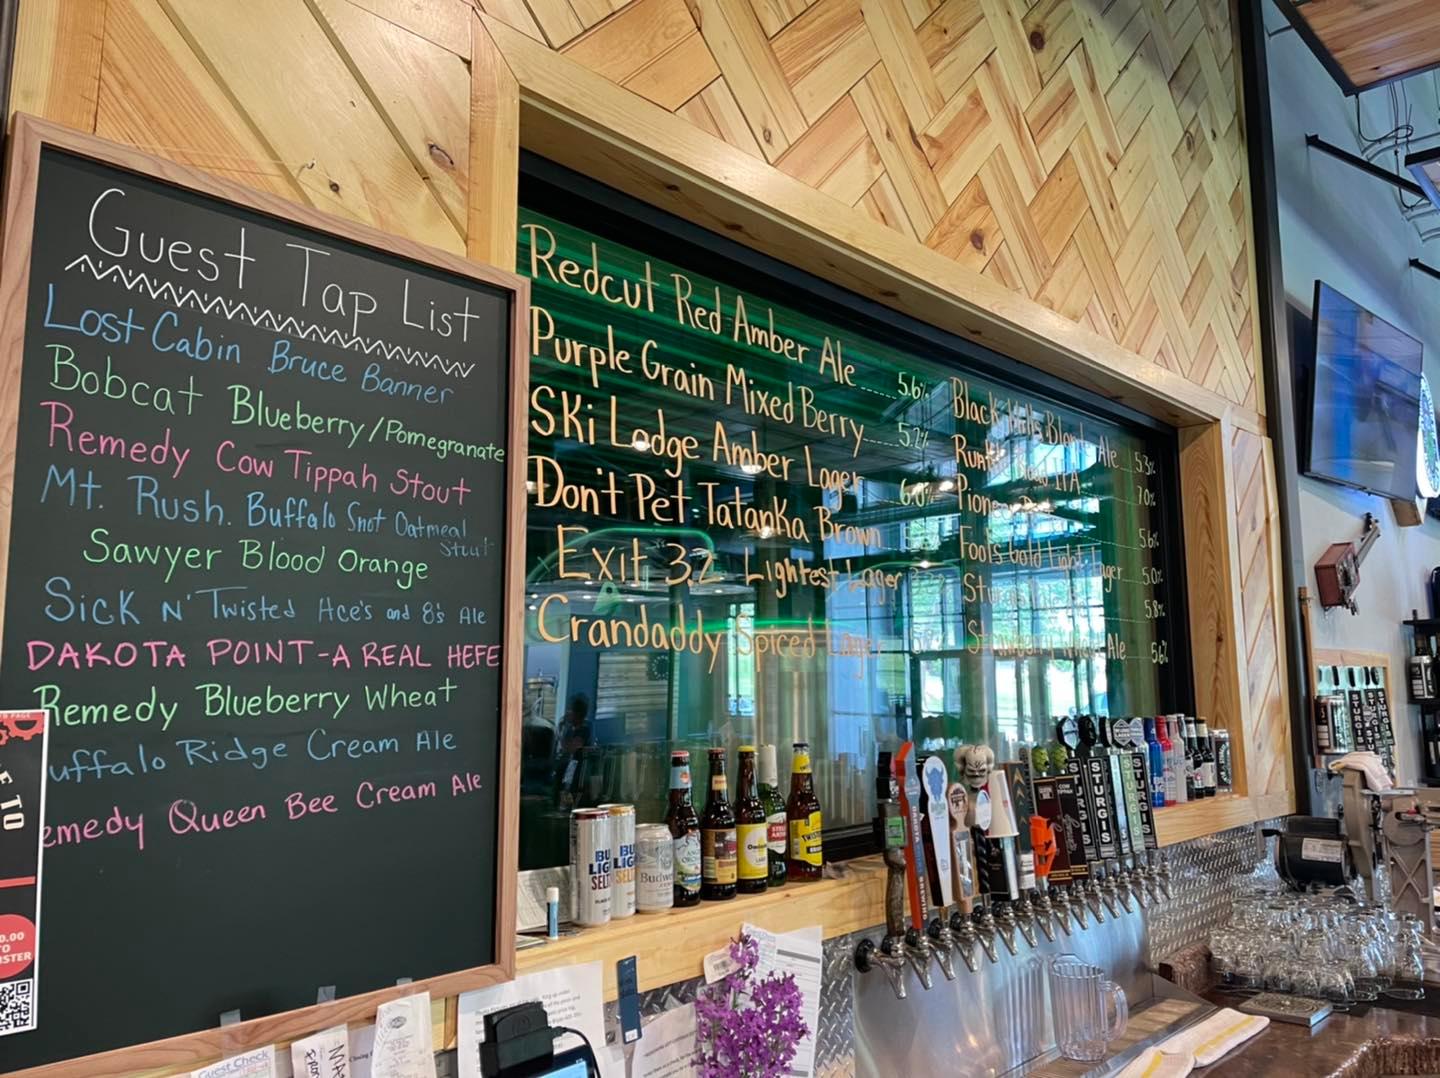 Guest Tap List
Lost Cabin Bruce Banner
Bobcat Blueberry/Pomegranate
Remedy Cow Tippah Stout
Mt. Rush. Buffalo Snot Oatmeal
Stout
Sawyer Blood Orange
Sick N' Twisted Ace's and 8's Ale
DAKOTA POINT-A REAL HEFE
Remedy Blueberry Wheat
uffalo Ridge Cream Ale
emedy Queen Bee Cream Ale
Redcut Red Amber Ale 5.6%
Purple Grain Mixed Berry 5.2%
Ski Lodge Amber Lager 6.0%
Don't Pet Tatanka Brown
Exit 32 Lightest Lager
Crandaddy Spiced Lager
Black Hills Blonde Ale 5.3%
Road IPA 7.0%
5.6%
Fools Gold Light Lager 5.0%
5.8%
Strawberry Wheat Ale 5.6%
BUD
LIGHT
SELTZ
BUD
LIGHT
SELT
Budwe
STURGIS
STURGIS
STURGIS
STURGIS
Guest Check
TO
0.00
TO